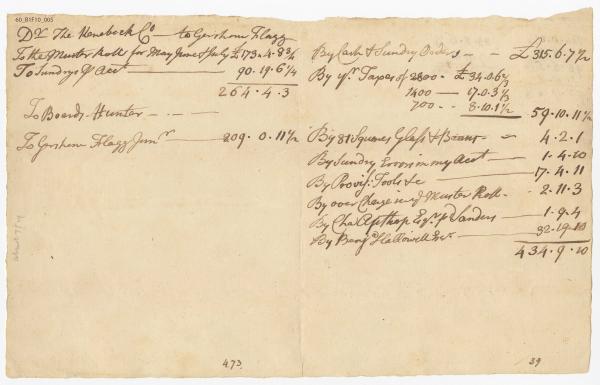 60_B1F10_005
Dr. The Kenebeck Co. — to Gershom Flagg
To the Muster Roll for May June & July £173.4.8¾
To Sundrys pr Acct — 90.19.6¼
264.4.3
To Boards Hunter — — —
To Gershom Flagg Junr — 209.0.11½
By Cash & Sundry Orders — £315.6.7½
By yr. Tapes of 2800 . £34.0.6⅔
1400 — 17.0.3⅓
700 .. 8.10.1½
59.10.11½
By 81 Squares Glass & — 4.2.1
By Sundry Errors in my Acct — 1.4.10
By Provis. Tools &c — 17.4.11
By over Charge in yr Muster Roll - 2.11.3
By Cha Apthop Esqr. pr Sanders — 1.9.4
By Benj. Hallowell Esr. — 32.19.10
434.9.10
473
39